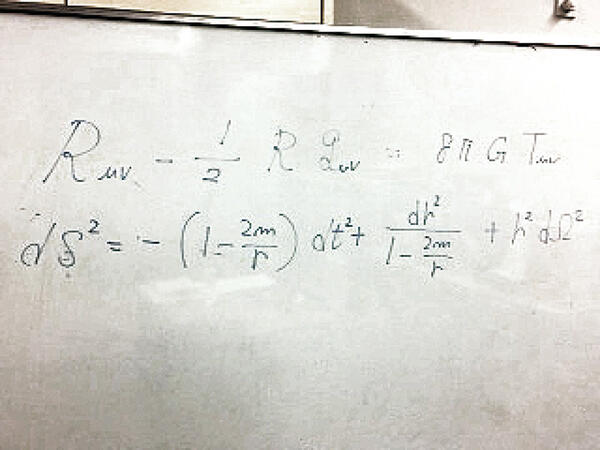 R_{μν} - \frac{1}{2} R g_{μν} = 8πG T_{μν}
ds^2 = -(1 - \frac{2m}{r}) dt^2 + \frac{dr^2}{1 - \frac{2m}{r}} + r^2 dΩ^2